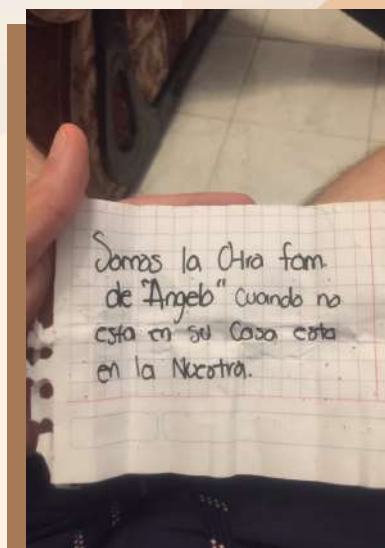 Somos la Otra fam.
de "Angelo" cuando no
esta en su Casa esta
en la Nuestra.